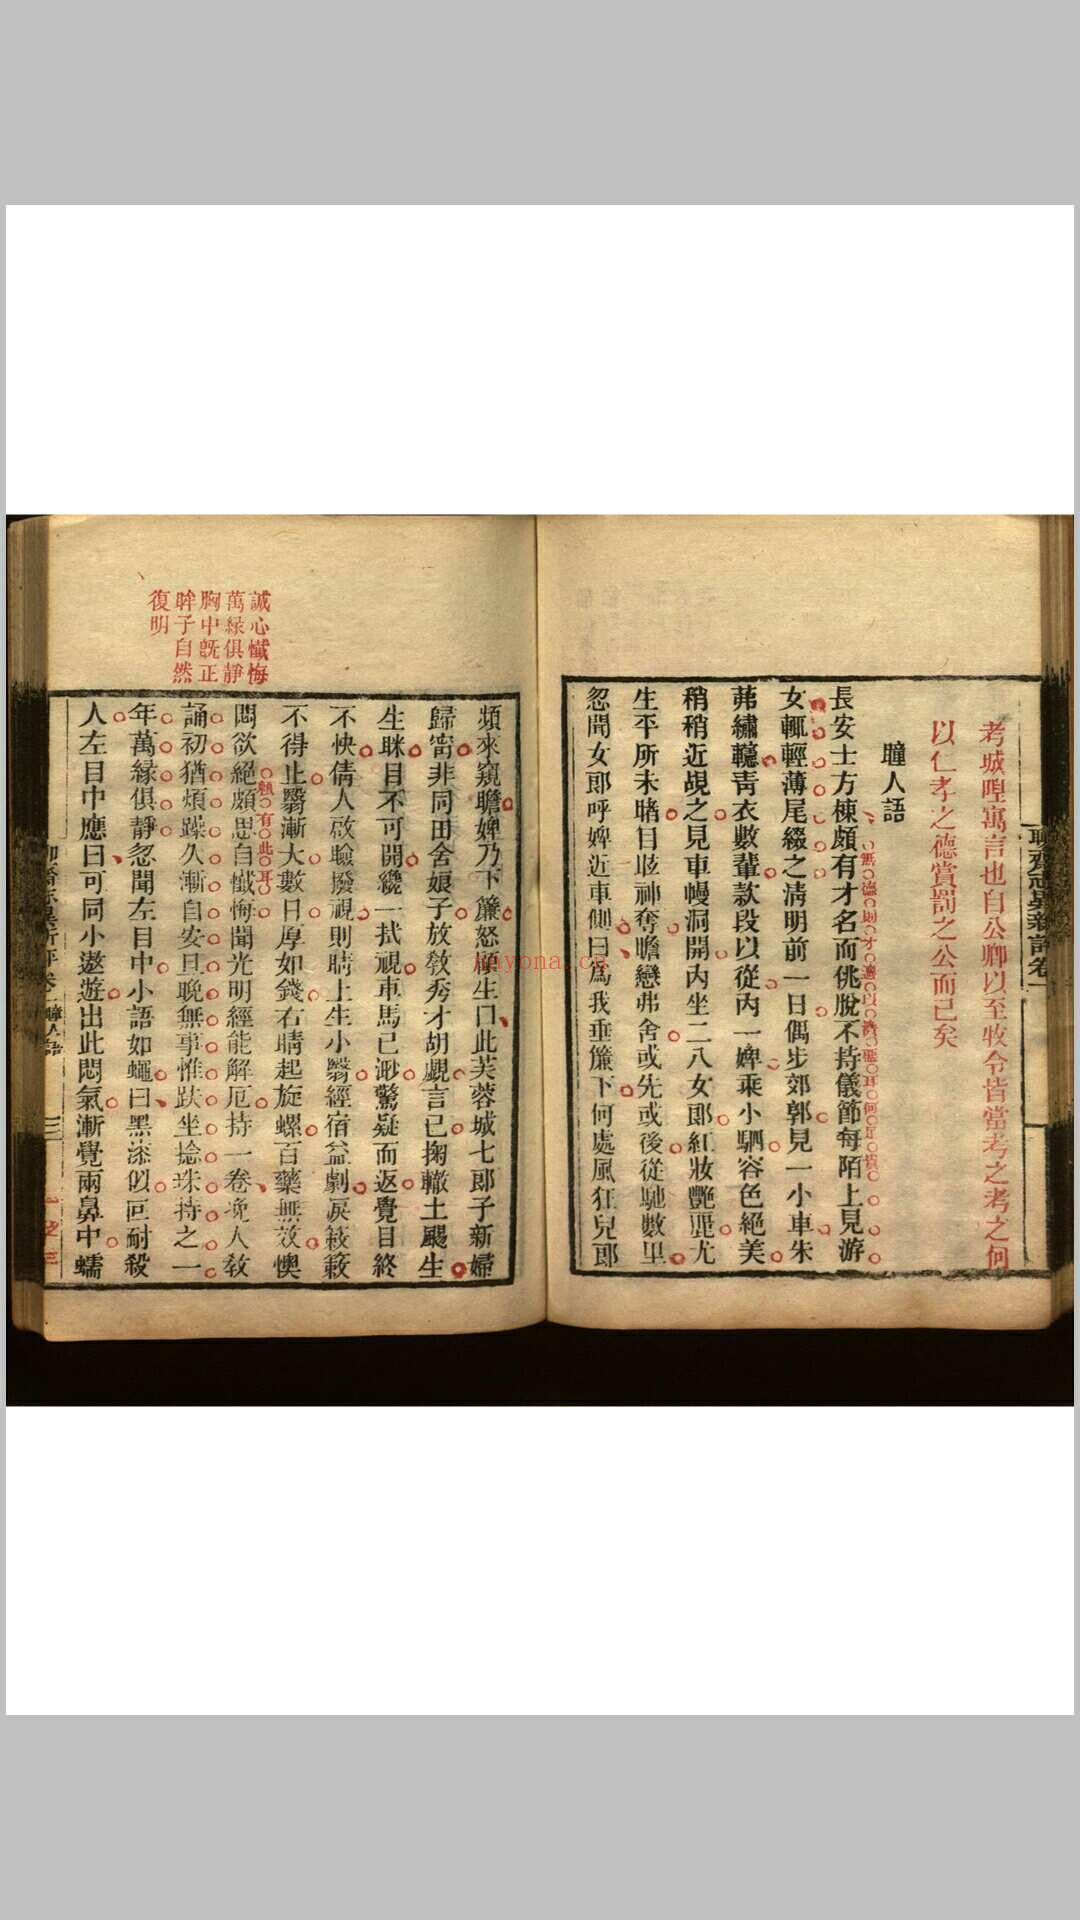 考城隍寓言也自公卿以至牧令皆當考之考之何
以仁孝之德賞罰之公而已矣
瞳人語
長安士方棟頗有才名而佻脫不持儀節每陌上見游
無德則才適以濟惡耳何足貴
女輒輕薄尾綴之清明前一日偶步郊郭見一小車朱
茀繡幰青衣數輩款段以從內一婢乘小駟容色絕美
稍稍近覘之見車幔洞開內坐二八女郎紅妝艷麗尤
生平所未睹目眩神奪瞻戀弗舍或先或後從馳數里
忽聞女郎呼婢近車側曰爲我垂簾下何處風狂兒郎
頻來窺瞻婢乃下簾怒顧生曰此芙蓉城七郎子新婦
歸甯非同田舍娘子放教秀才胡覷言已掬轍土颺生
生眯目不可開纔一拭視車馬已渺驚疑而返覺目終
不快倩人啟瞼撥視則睛上生小翳經宿益劇淚簌簌
不得止翳漸大數日厚如錢右睛起旋螺百藥無效懊
賴有此耳
悶欲絕頗思自懺悔聞光明經能解厄持一卷浼人教
誦初猶煩躁久漸自安旦晚無事惟趺坐捻珠持之一
年萬緣俱靜忽聞左目中小語如蠅曰黑漆似叵耐殺
人左目中應曰可同小遨遊出此悶氣漸覺兩鼻中蠕
誠心懺悔
萬緣俱靜
胸中既正
眸子自然
復明
聊齋志異新評卷一
瞳人語
三
nayona.cn